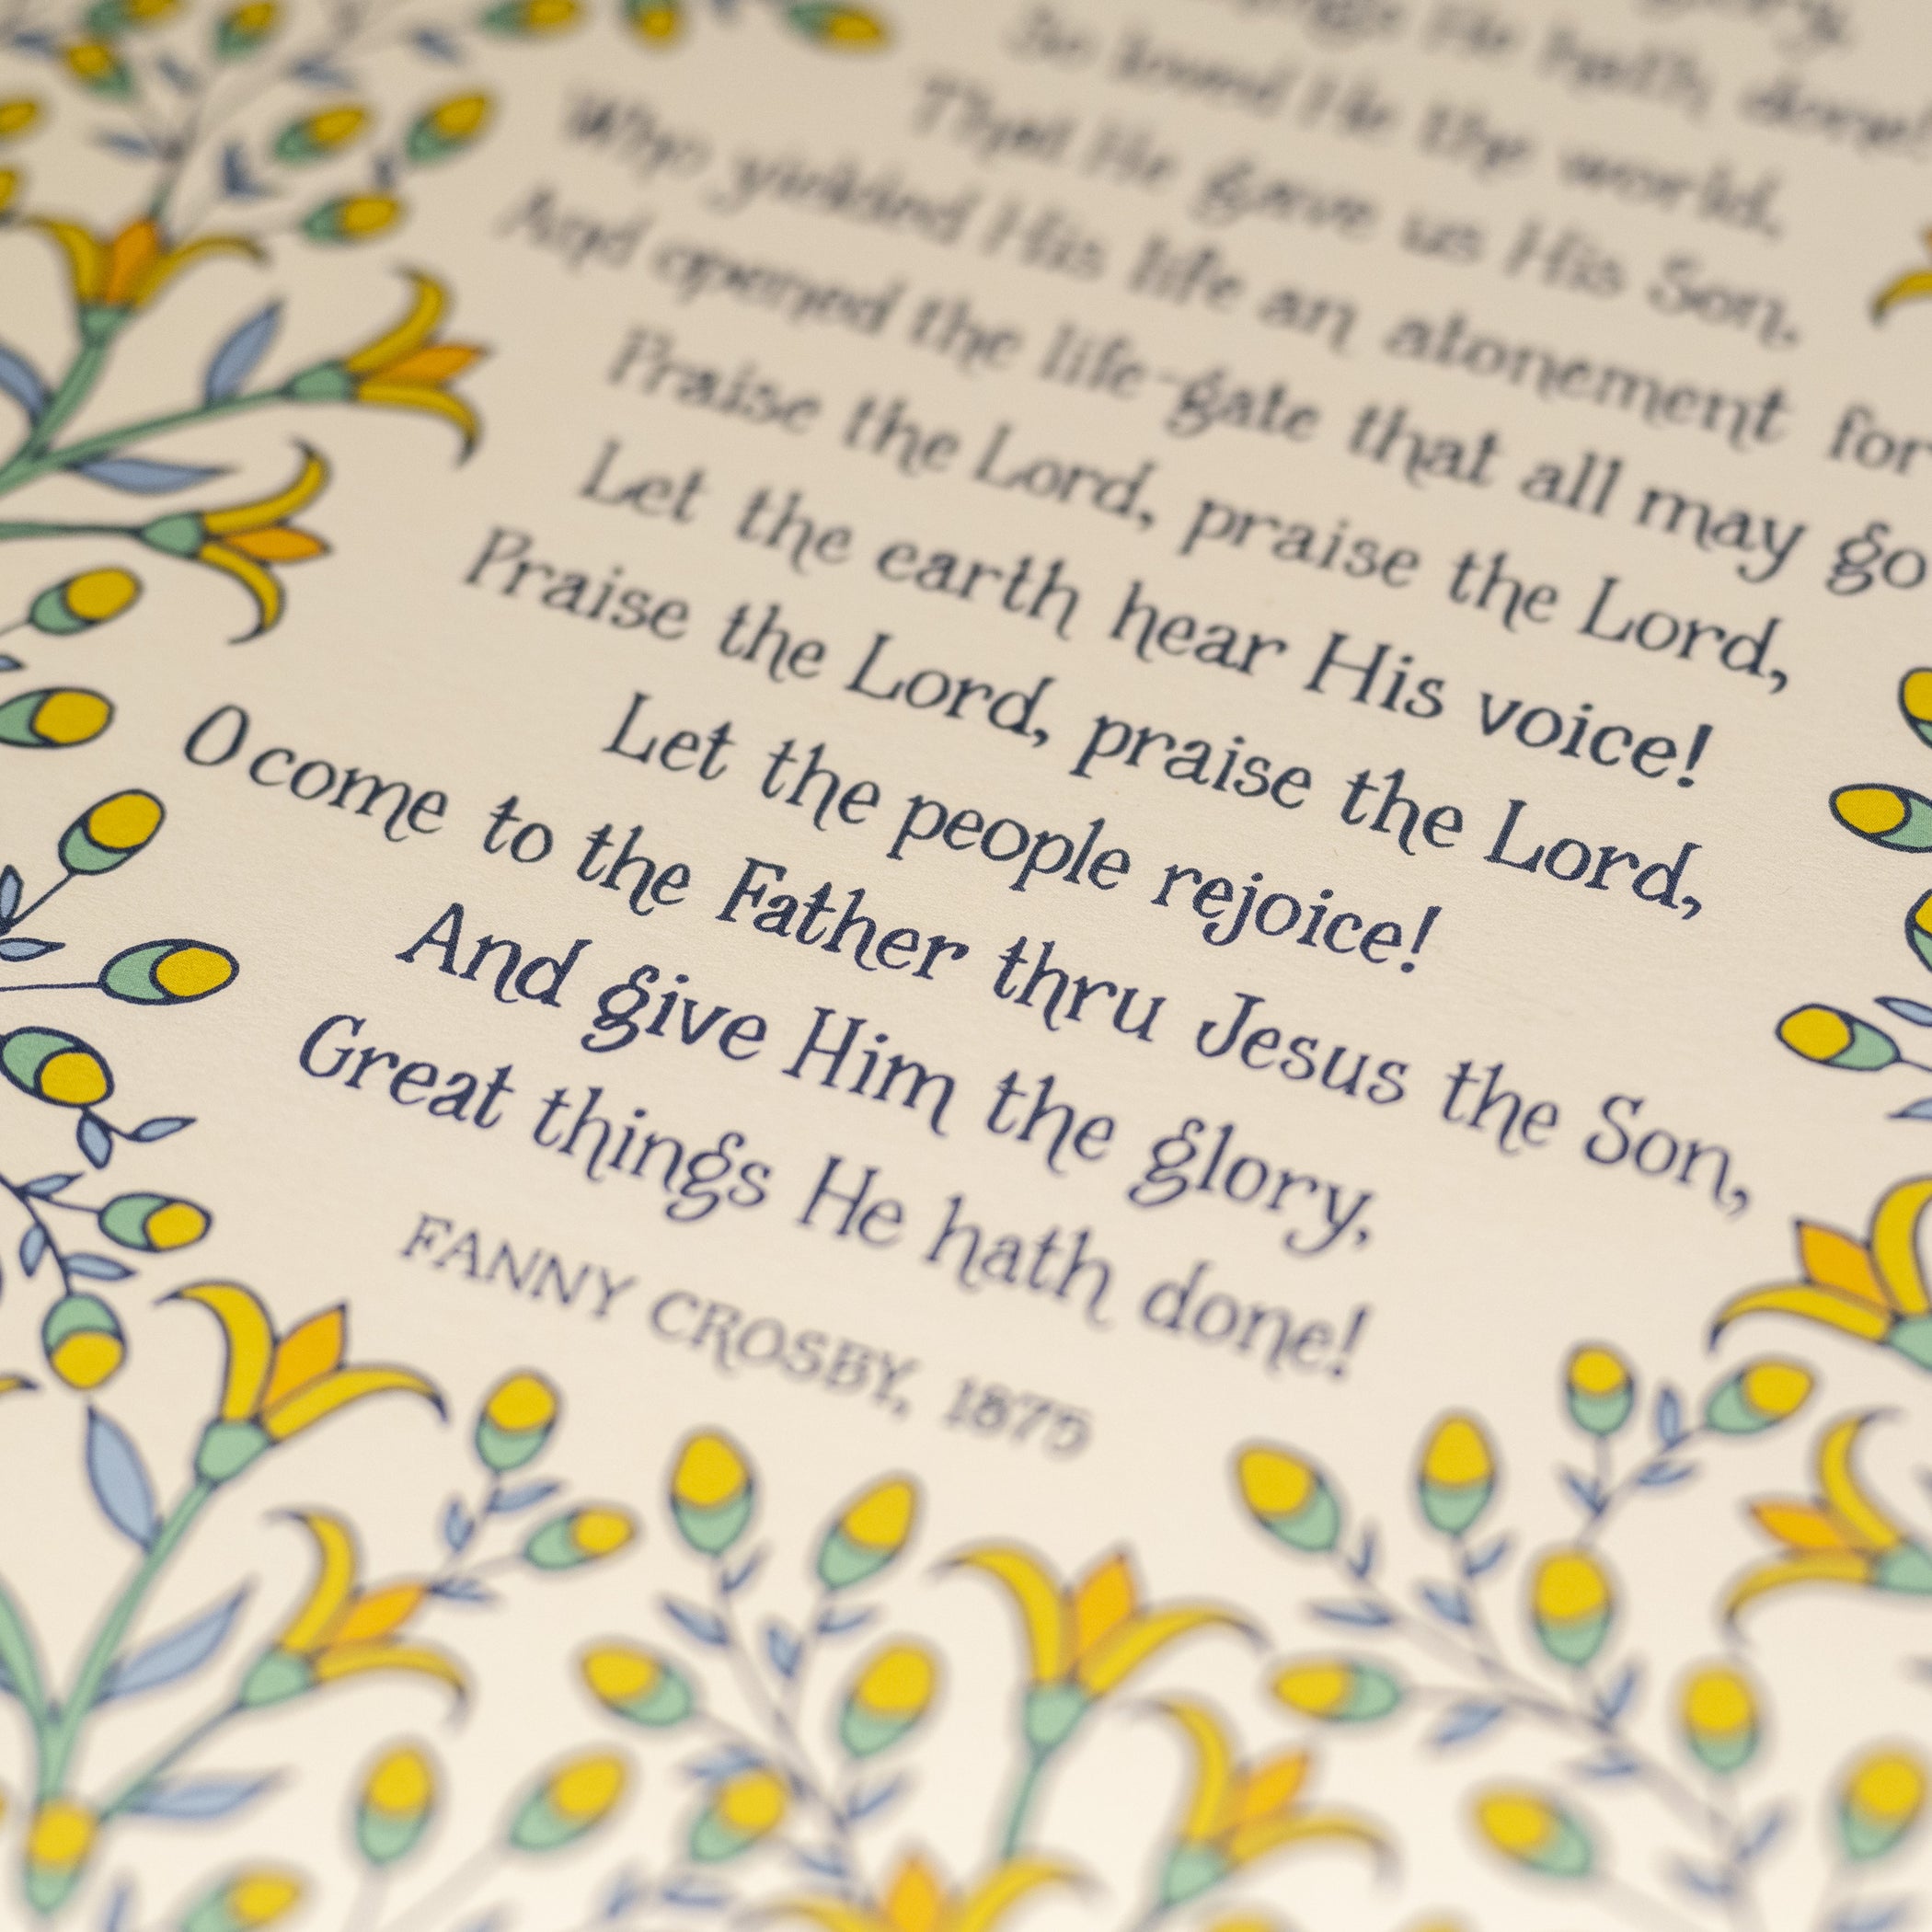 glory,
things He hath done!
So loved He the world,
That He gave us His Son,
Who yielded His life an atonement for
And opened the life-gate that all may go
Praise the Lord, praise the Lord,
Let the earth hear His voice!
Praise the Lord, praise the Lord,
Let the people rejoice!
O come to the Father thru Jesus the Son,
And give Him the glory,
Great things He hath done!
FANNY CROSBY, 1875